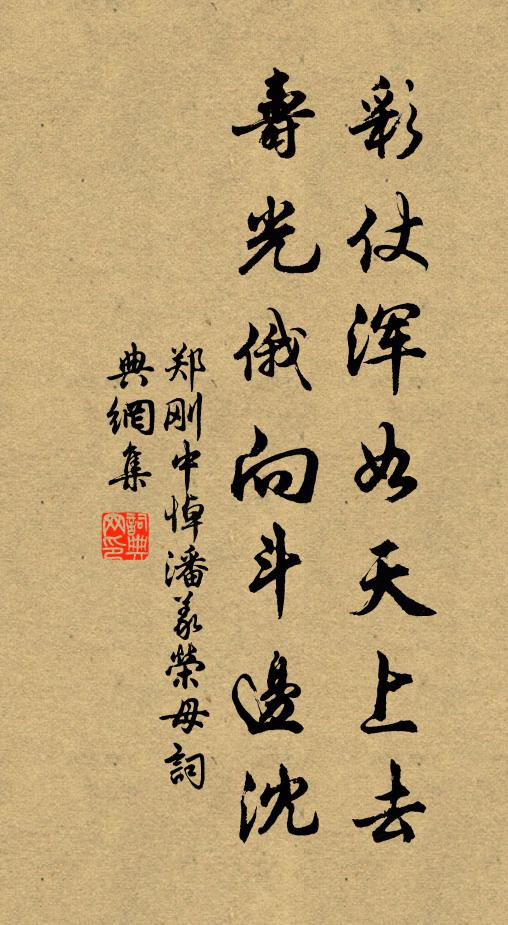 彩仗浑如天上去
寿光俄向斗邊沈
郑刚中悼潘義榮母詞
典網集
詞典网印